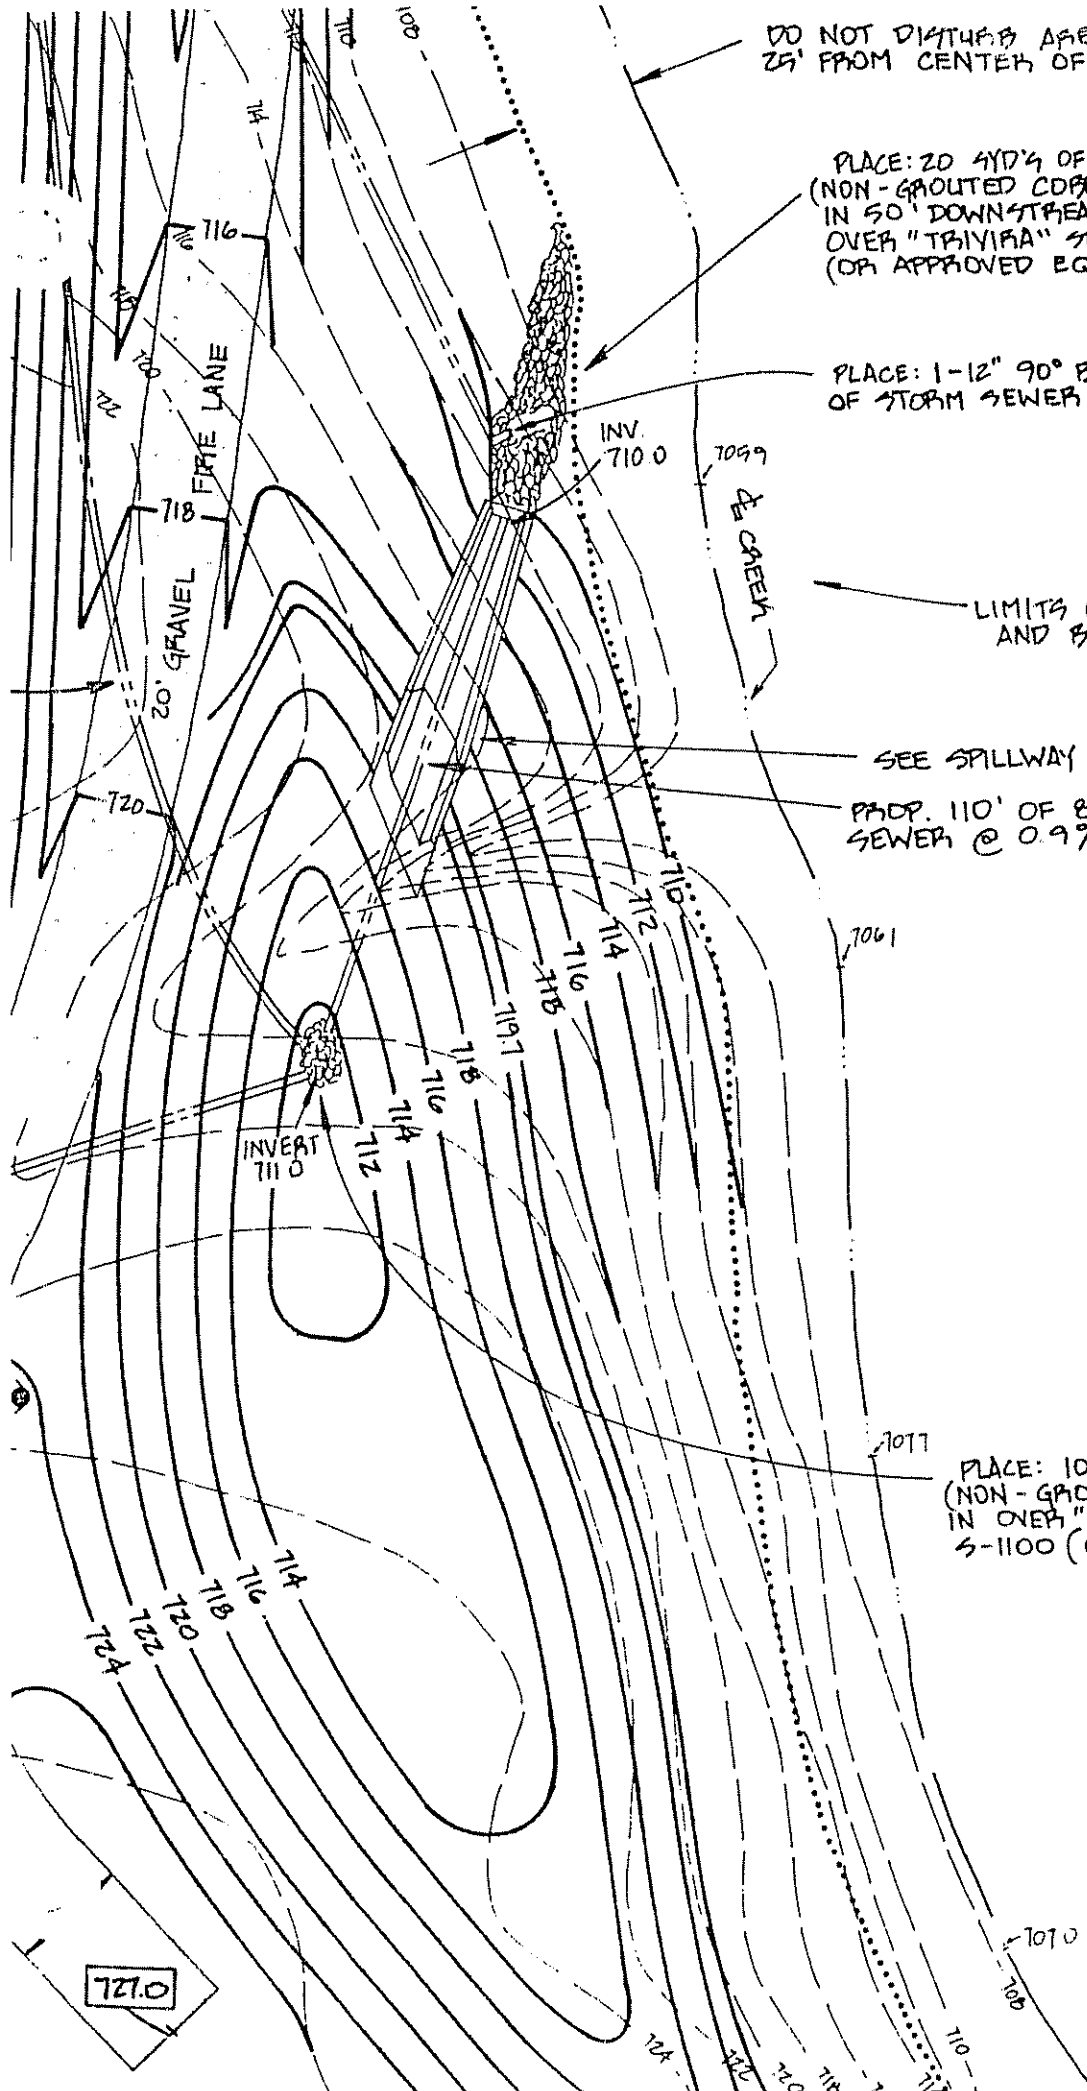 DO NOT DISTURB ARE
25' FROM CENTER OF
PLACE: 20 SYD'S OF
(NON-GROUTED COB
IN 50' DOWNSTREA
OVER "TRIVIRA" S
(OR APPROVED EQ
PLACE: 1-12" 90° B
OF STORM SEWER
INV.
710.0
7059
℄ CREEK
LIMITS
AND B
SEE SPILLWAY
PROP. 110' OF 8
SEWER @ 0.9%
20' GRAVEL FIRE LANE
708
710
714
716
716
718
720
722
718
720
710
712
714
716
718
719.7
718
716
714
712
7061
INVERT
711.0
7077
PLACE: 10
(NON-GRO
IN OVER "
S-1100 (
714
716
718
720
722
724
727.0
7070
708
710
724
722
720
718